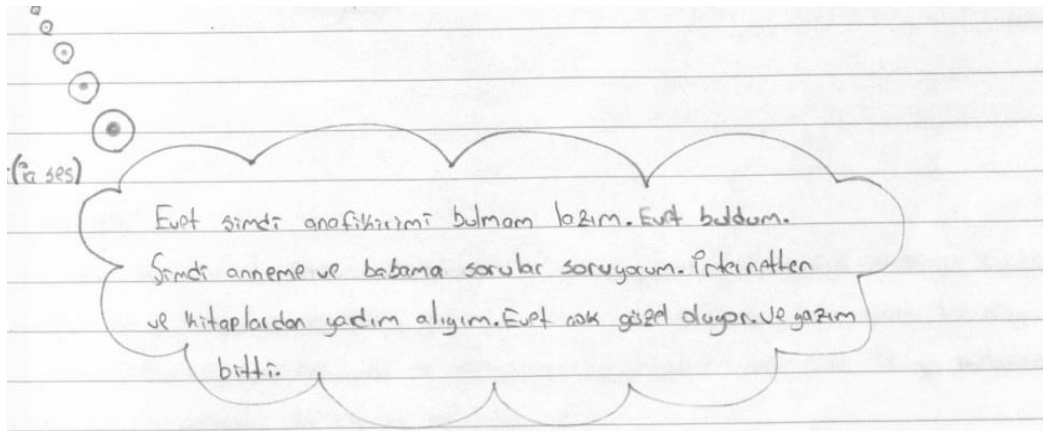 (iç ses)
Evet şimdi anafikirimi bulmam lazım. Evet buldum.
Şimdi anneme ve babama sorular soruyorum. İnternetten
ve kitaplardan yardım alıyım. Evet çok güzel oluyor. Ve yazım
bitti.